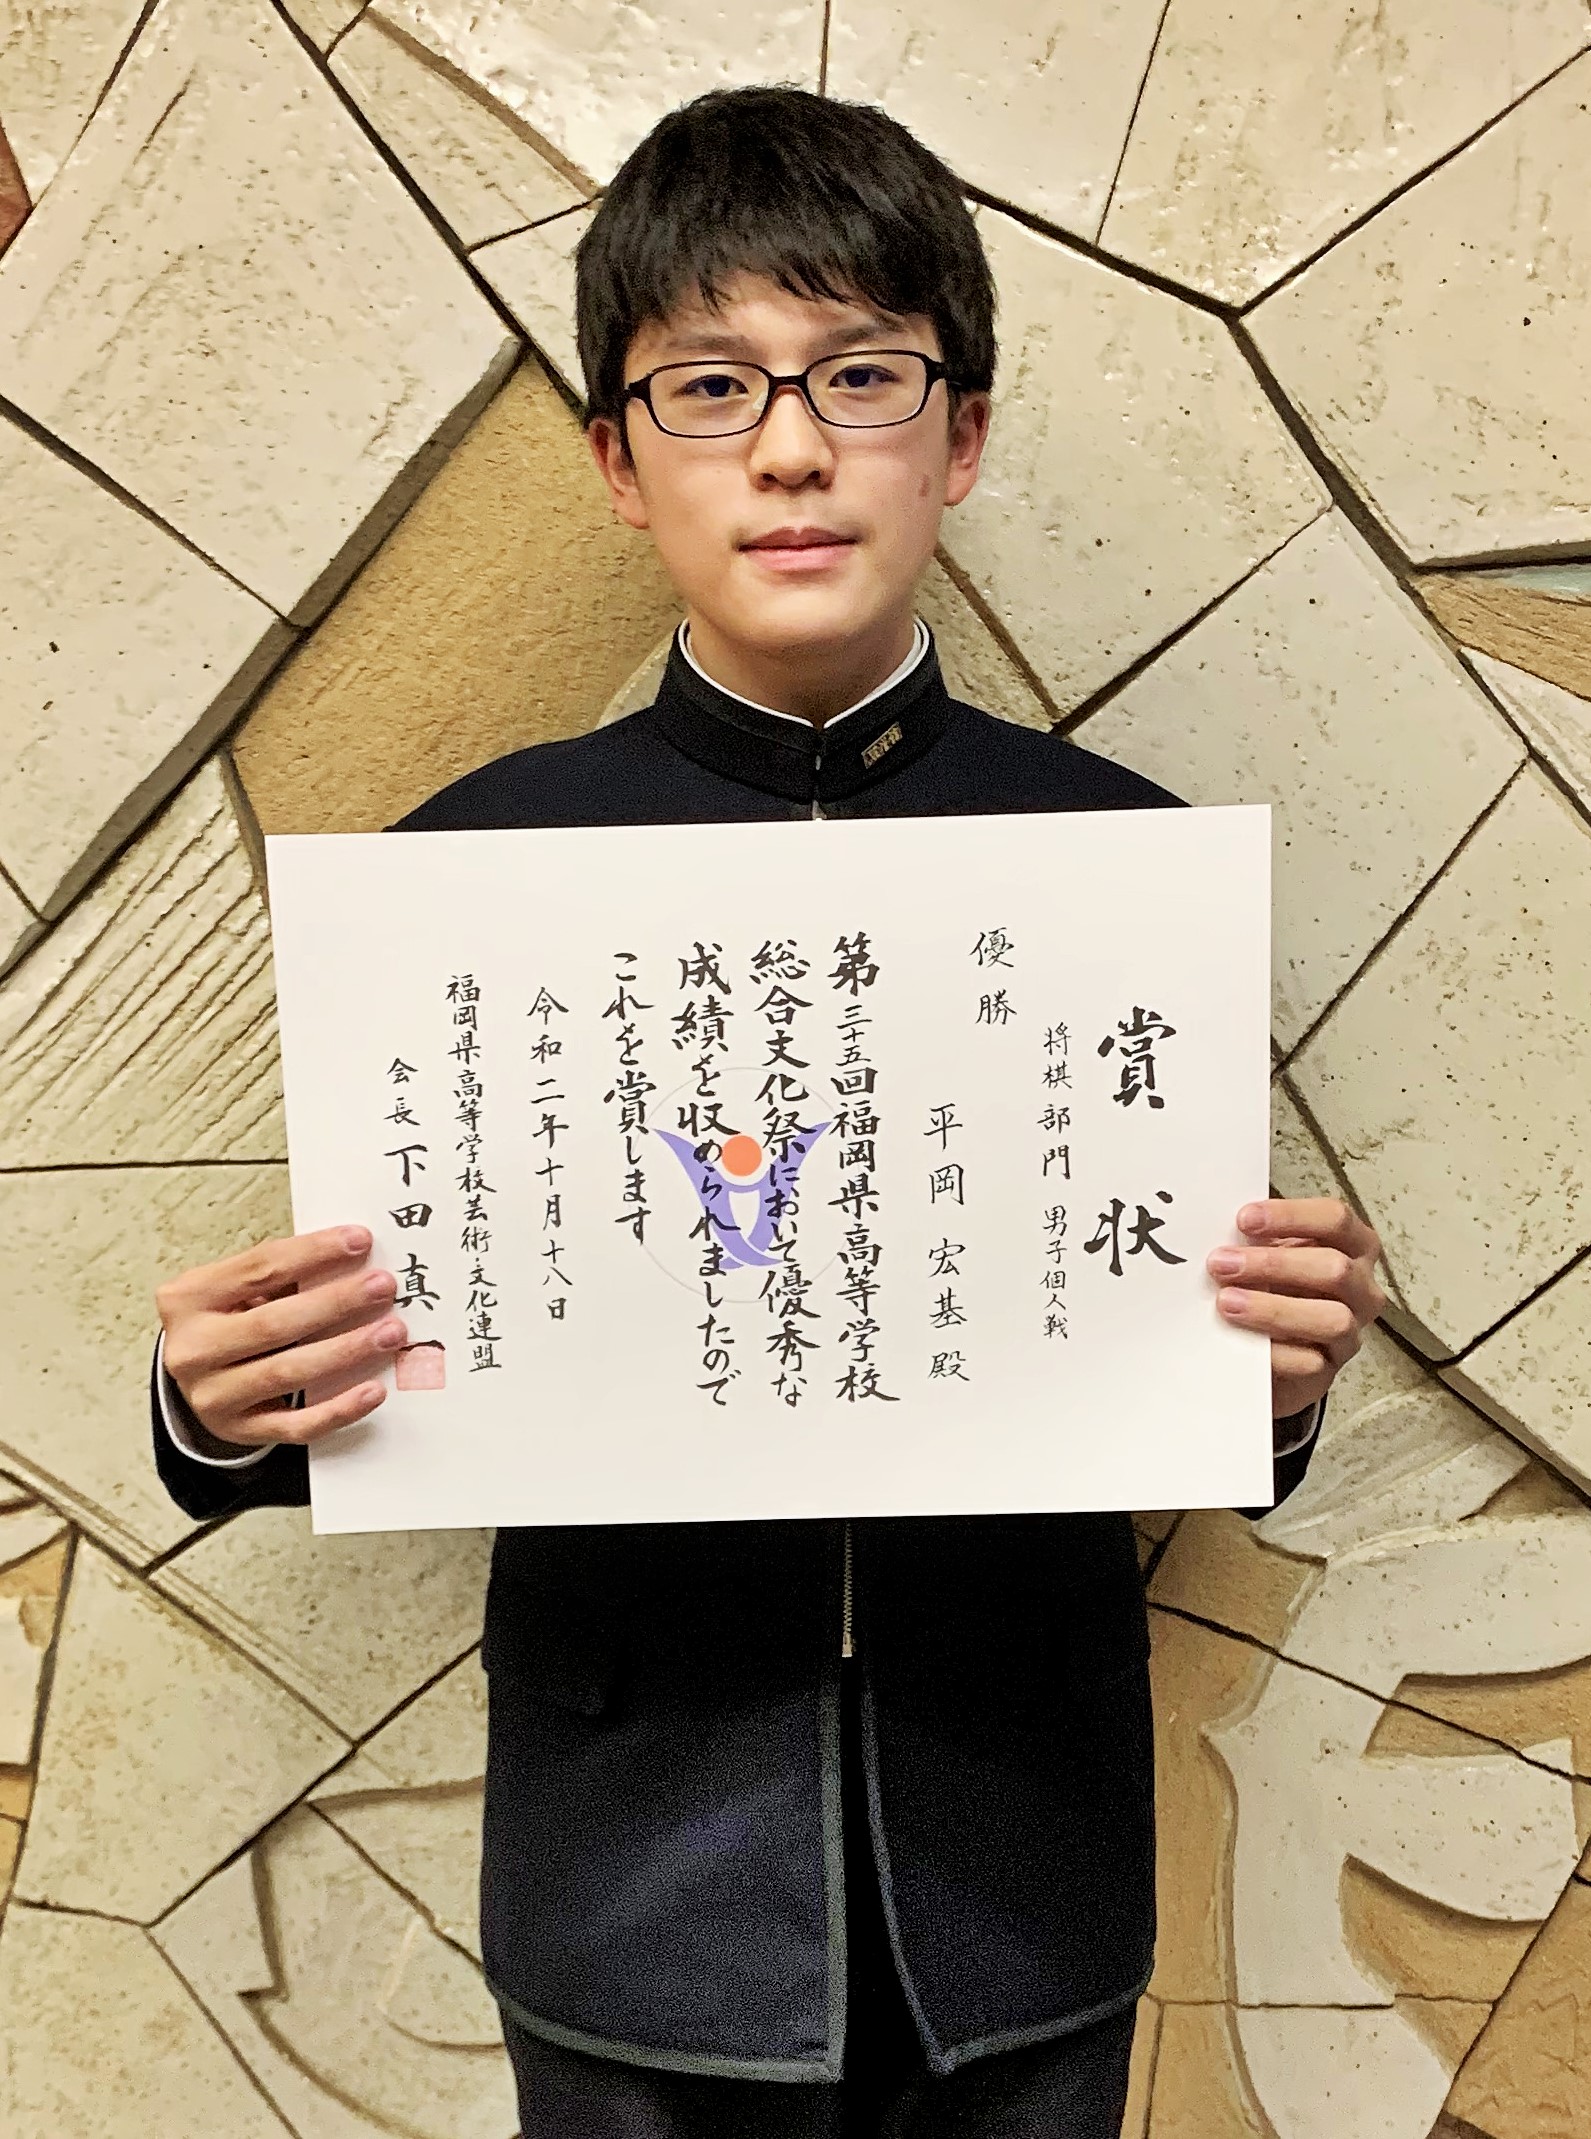 賞状
将棋部門 男子個人戦
優勝
平岡宏基殿
第三十五回福岡県高等学校
総合文化祭において優秀な
成績を収められましたので
これを賞します
令和二年十月十八日
福岡県高等学校芸術・文化連盟
会長 下田真一